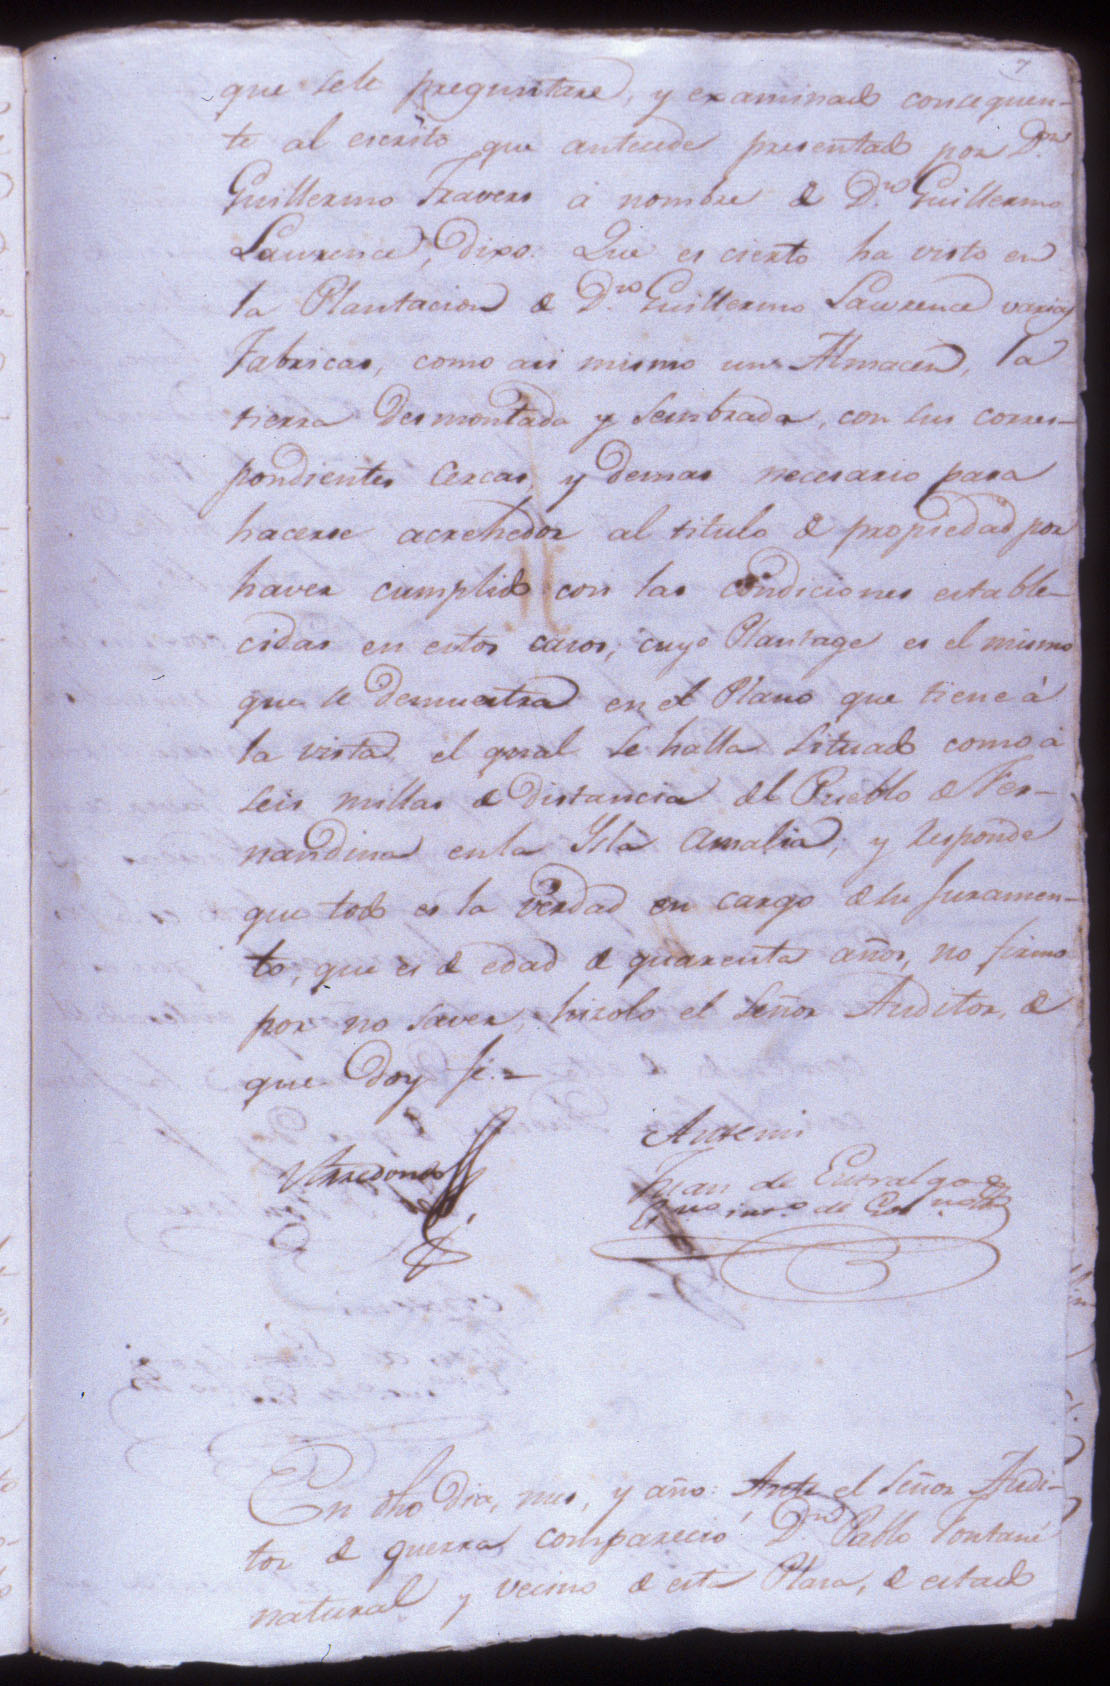 7
que sele preguntare, y examinado consequen-
te al escrito que antecede presentado por D.n
Guillermo Travers á nombre de D.n Guillermo
Lawrence, Dixo: Que es cierto ha visto en
la Plantacion de D.n Guillermo Lawrence varias
Fabricas, como asi mismo un Almacen, la
tierra Desmontada y Sembrada, con sus corres-
pondientes Cercas, y demas necesario para
hacerse acrehedor al titulo de propiedad por
haver cumplido con las condiciones estable-
cidas en estos casos; cuyo Plantage es el mismo
que se Demuestra en el Plano que tiene á
la vista, el qual se halla situado como á
seis millas de Distancia del Pueblo de Fer-
nandina en la Ysla Amalia; y Responde
que todo es la verdad en cargo de su Juramen-
to, que es de edad de quarenta años, no firmo
por no saver, hizolo el Señor Auditor, de
que Doy fe.=
Arredondo
Antemi
Juan de Entralgo
Es.no int.o de Gov.no
En dho Dia, mes, y año: Ante el Señor Audi-
tor de guerra, comparecio D.n Pablo Fontané
natural y vecino de esta Plaza, de estado